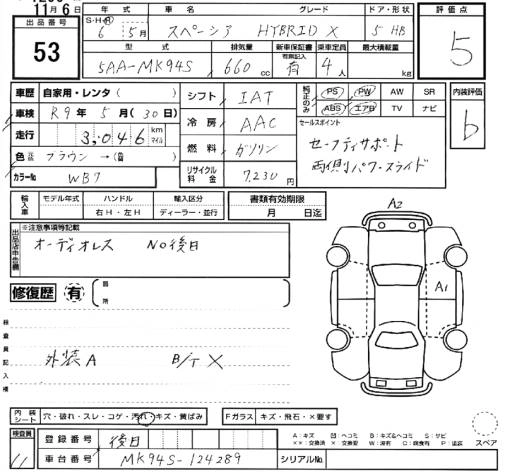 11月6日
出品番号 53
S・H・R 年式 6年 5月
車名 スペーシア
グレード HYBRID X
ドア・形状 5 HB
評価点 5
型式 5AA-MK94S
排気量 660 cc
新車保証書 有無記入 有
乗車定員 4人
最大積載量 kg
車歴 自家用・レンタ( )
車検 R9年5月(30日)
走行 3,046 km マイル
色 ブラウン→( )
カラーNo WB7
シフト IAT
冷房 AAC
燃料 ガソリン
リサイクル料金 7,230円
純正のみ PS PW AW SR
ABS エアB TV ナビ
内装評価 b
セールスポイント
セーフティサポート
両側パワースライド
輸入車 モデル年式 ハンドル 輸入区分
年 右H・左H ディーラー・並行
書類有効期限
月 日迄
出品店申告欄 ※注意事項等記載
オーディオレス NO後日
修復歴 有 箇所
検査員記入欄
外装A B/T X
A2
A1
内装シート 穴・破れ・スレ・コゲ・汚れ・キズ・黄ばみ
Fガラス キズ・飛石・×要す
検査員 11
登録番号 後日
車台番号 MK94S-124289
シリアルNo.
A:キズ B:キズ&ヘコミ S:サビ
××:交換済 ×:交換要 W:波有 C:腐食有 P:塗装
スペア